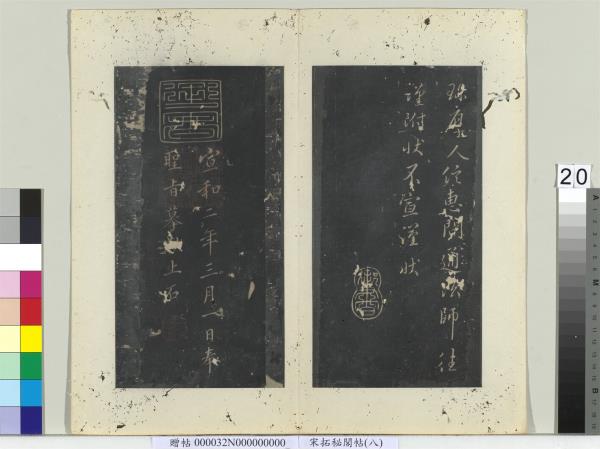 珎康人信惠閑通法師往
謹附狀不宣謹狀
御書
御書
宣和二年三月一日奉
聖旨摹勒上石
20
贈帖 000032N000000000_ 宋拓秘閣帖(八)